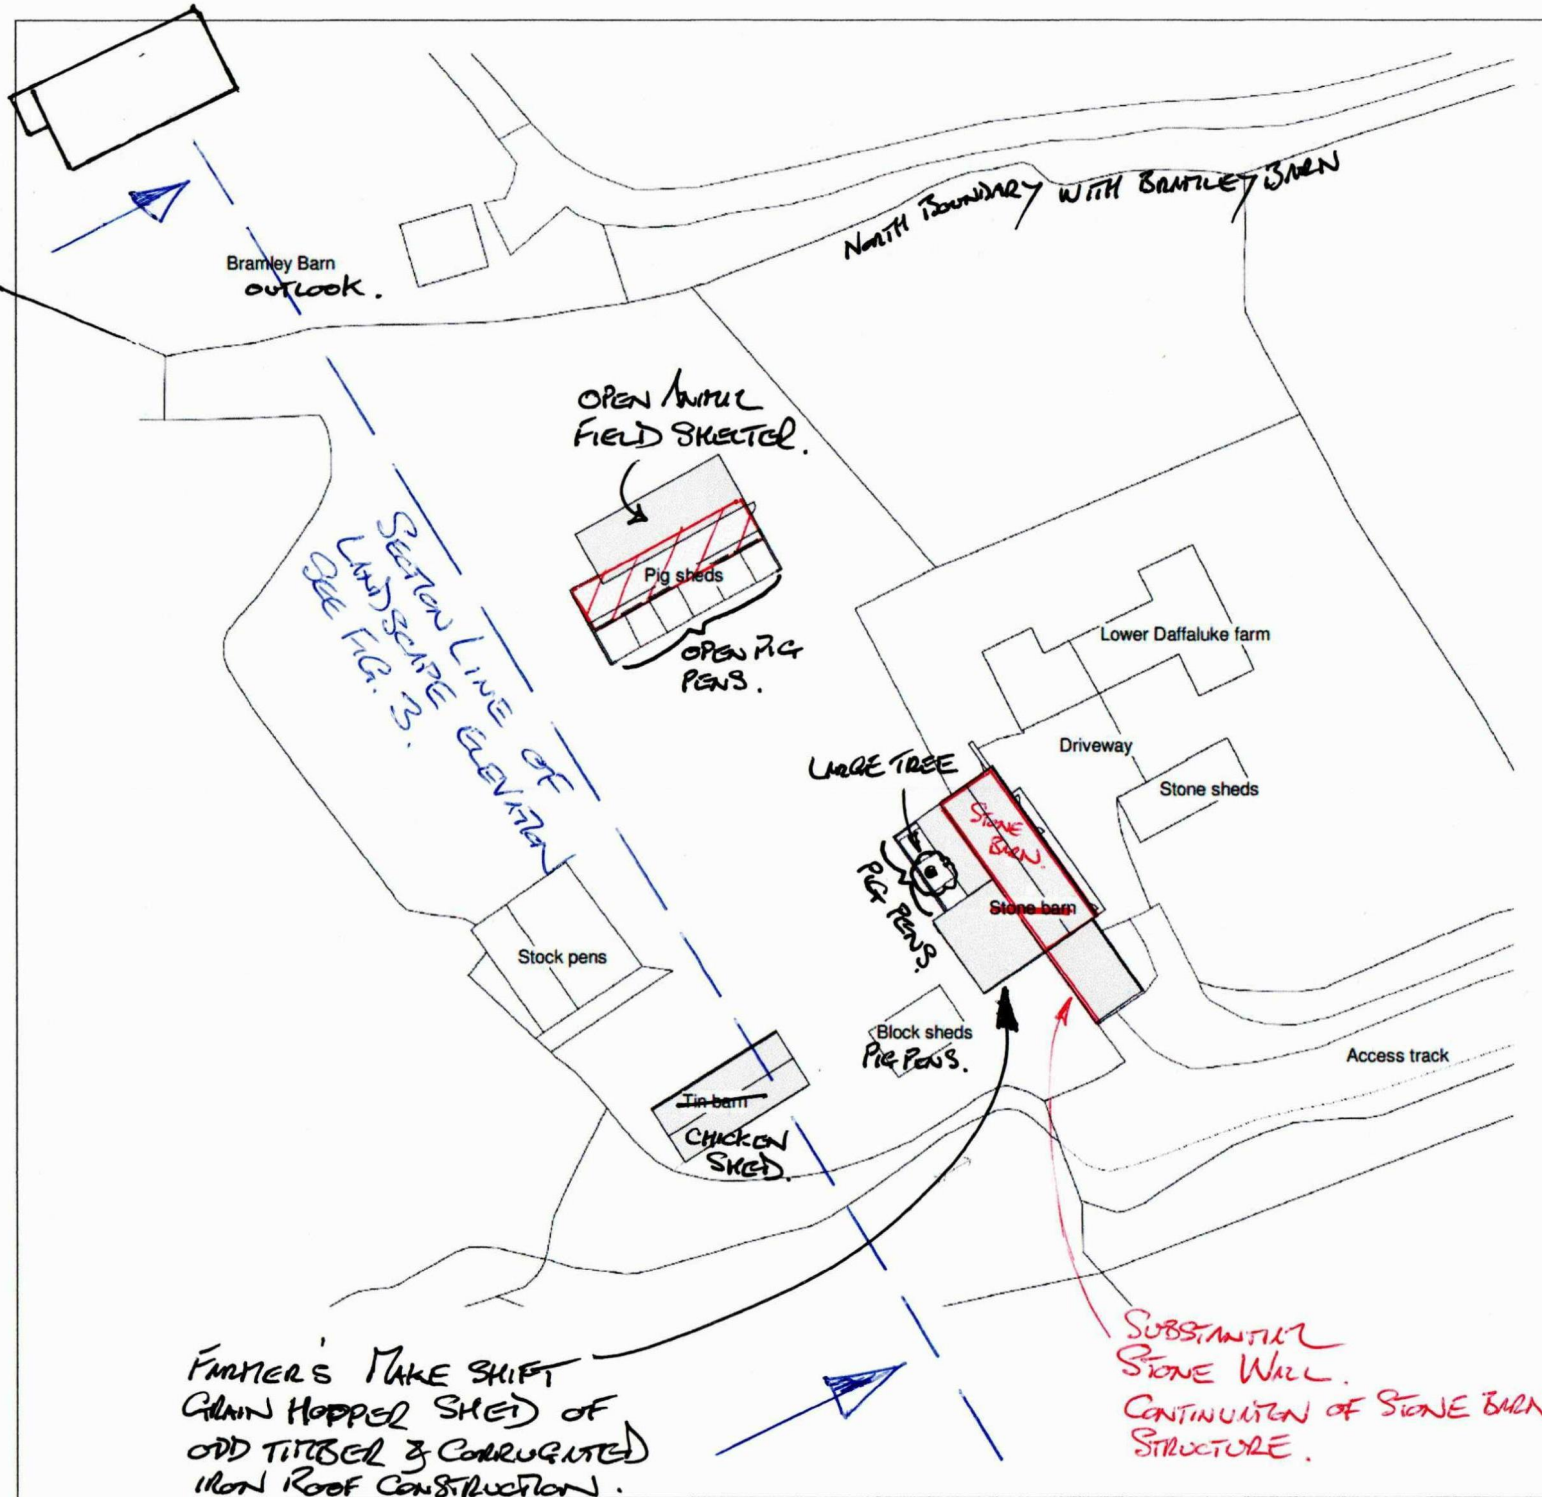 NORTH BOUNDARY WITH BRAMLEY BARN
Bramley Barn
OUTLOOK.
OPEN ANIMAL
FIELD SHELTER.
Pig sheds
OPEN PIG
PENS.
SECTION LINE OF
LANDSCAPE ELEVATION
SEE FIG. 3.
Lower Daffaluke farm
Driveway
Stone sheds
LARGE TREE
STONE
BARN.
Stone barn
PIG PENS.
Stock pens
Block sheds
PIG PENS.
Access track
Tin barn
CHICKEN
SHED.
FARMER'S MAKE SHIFT
GRAIN HOPPER SHED OF
ODD TIMBER & CORRUGATED
IRON ROOF CONSTRUCTION.
SUBSTANTIAL
STONE WALL.
CONTINUATION OF STONE BARN
STRUCTURE.